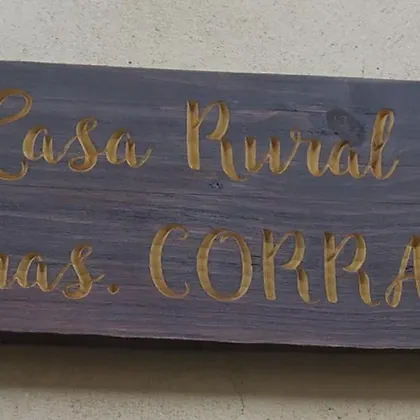 Casa Rural
nas. CORRA